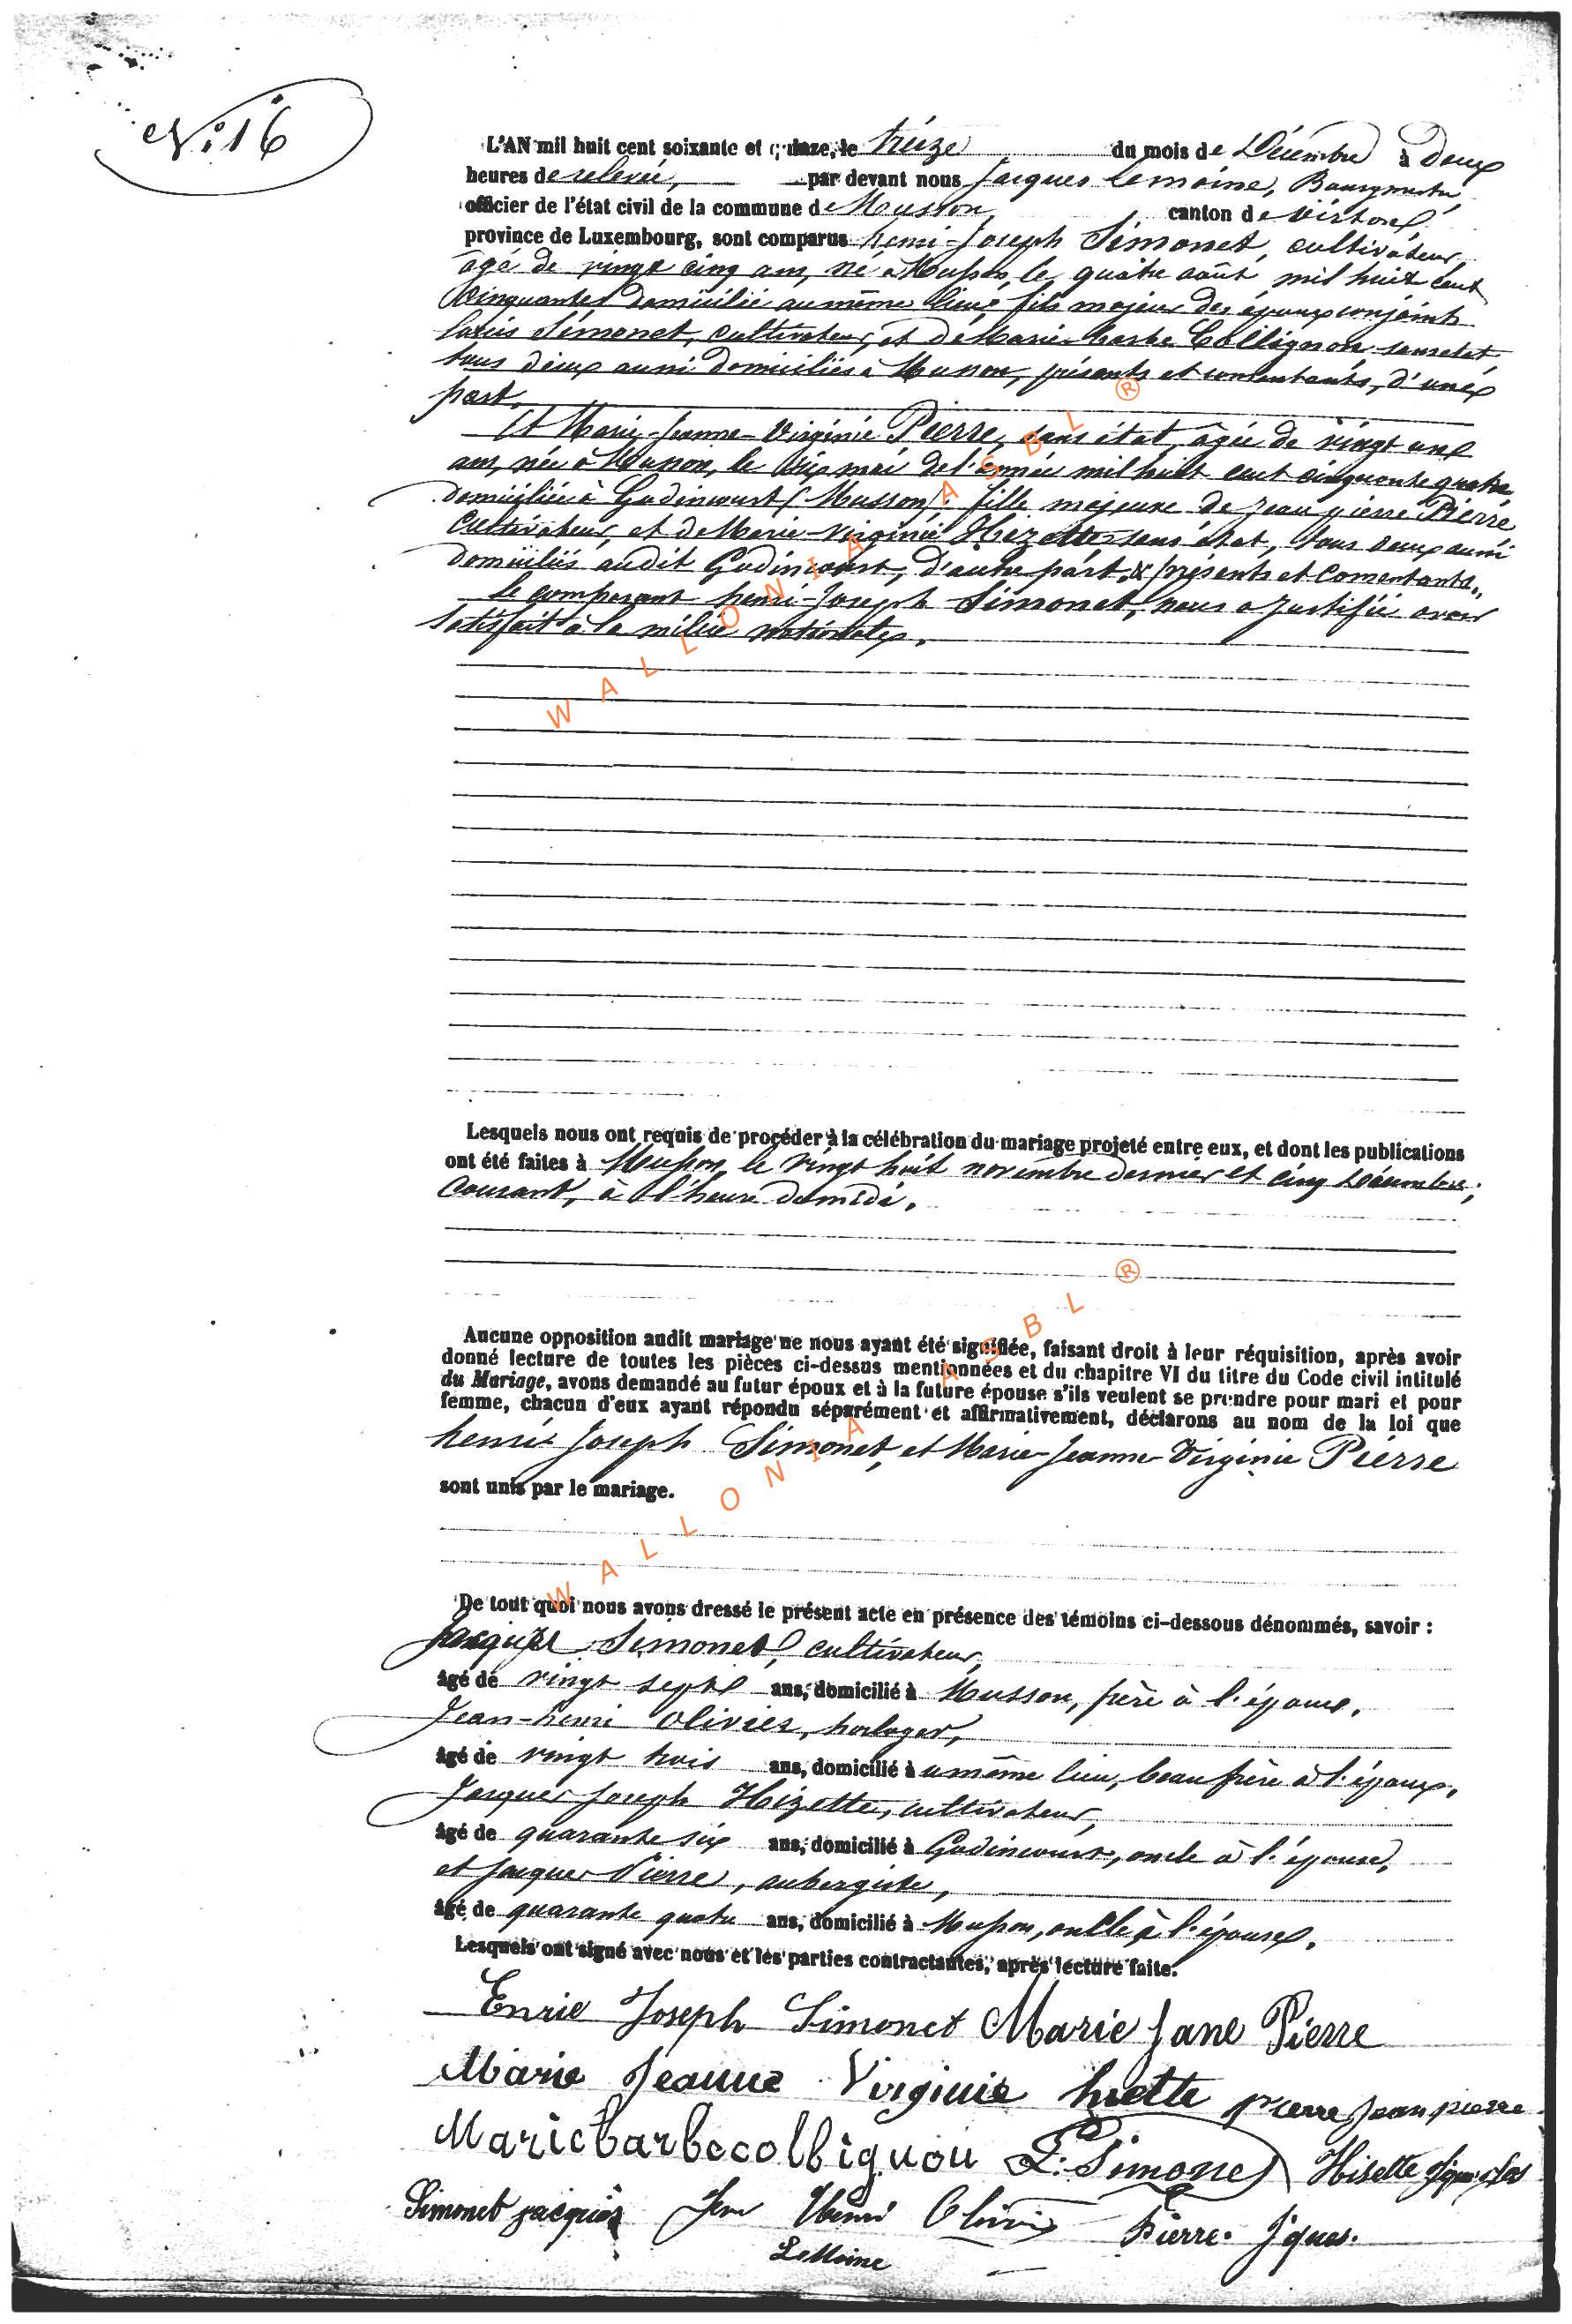 N° 16
L'AN mil huit cent soixante et quinze, le treize du mois de Décembre à deux
heures de relevée, par devant nous Jacques Lemoine, Bourgmestre,
officier de l'état civil de la commune de Musson, canton de Virton,
province de Luxembourg, sont comparus henri-Joseph Simonet, cultivateur,
âgé de vingt cinq ans, né à Musson, le quatre août mil huit cent
cinquante, domicilié au même lieu, fils majeur des époux conjoints
Louis Simonet, cultivateur, et de Marie-barbe Collignon, sans état,
tous deux aussi domiciliés à Musson, présents et consentants, d'une
part.
Et Marie-Jeanne-Virginie Pierre, sans état, âgée de vingt un
ans, née à Musson, le mai de l'année mil huit cent cinquante quatre
domiciliée à Godincourt (Musson), fille majeure de Jean pierre Pierre
cultivateur, et de Marie-Virginie Hizette, sans état, tous deux aussi
domiciliés audit Godincourt, d'autre part, & présents et consentants.
Le comparant henri-Joseph Simonet, nous a justifié avoir
satisfait à la milice nationale.
Lesquels nous ont requis de procéder à la célébration du mariage projeté entre eux, et dont les publications
ont été faites à Musson, le vingt huit novembre dernier et cinq Décembre,
courant, à l'heure de midi.
Aucune opposition audit mariage ne nous ayant été signifiée, faisant droit à leur réquisition, après avoir
donné lecture de toutes les pièces ci-dessus mentionnées et du chapitre VI du titre du Code civil intitulé
du Mariage, avons demandé au futur époux et à la future épouse s'ils veulent se prendre pour mari et pour
femme, chacun d'eux ayant répondu séparément et affirmativement, déclarons au nom de la loi que
henri Joseph Simonet, et Marie-Jeanne-Virginie Pierre
sont unis par le mariage.
De tout quoi nous avons dressé le présent acte en présence des témoins ci-dessous dénommés, savoir :
Jacques Simonet, cultivateur,
âgé de vingt sept ans, domicilié à Musson, frère à l'époux.
Jean-henri Olivier, horloger,
âgé de vingt trois ans, domicilié au même lieu, beau frère à l'époux.
Jacques Joseph Hizette, cultivateur,
âgé de quarante six ans, domicilié à Godincourt, oncle à l'épouse,
et Jacques Pierre, aubergiste,
âgé de quarante quatre ans, domicilié à Musson, oncle à l'épouse.
Lesquels ont signé avec nous et les parties contractantes, après lecture faite.
Enrie Joseph Simonet Marie Jane Pierre
Marie Jeanne Virginie hizette pierre Jean pierre
Marie barbe collignon L: Simonet Hisette
Simonet jacques Jean Henri Olivier Pierre. Jques.
LeMoine
WALLONIA ASBL ®
WALLONIA ASBL ®